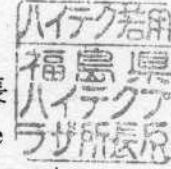 ハイテク若用
福島県
ハイテクプ
ラザ所長印
e